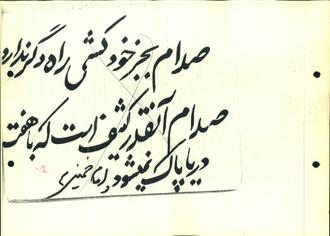 صدام بجز خودکشی راه دگر ندارد
صدام آنقدر کثیف است که با هفت
دریا پاک نمیشود امام خمینی